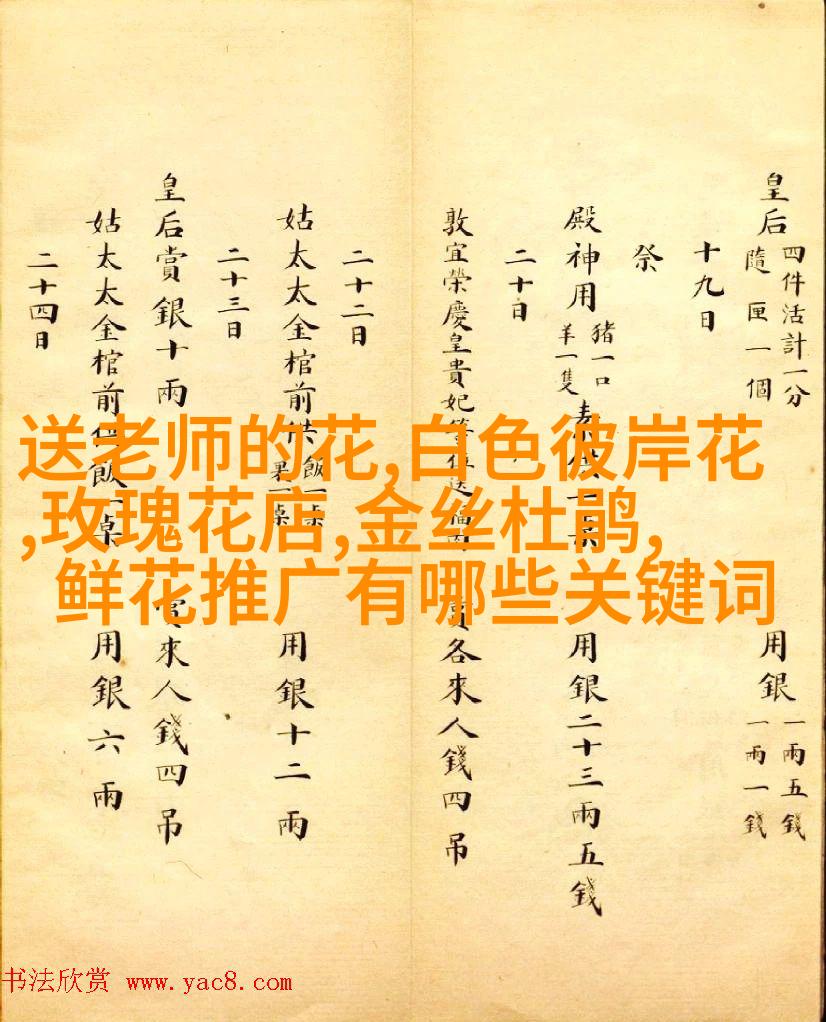 皇后
四件活計一分
隨匣一個
用銀
一兩五錢
一兩一錢
十九日
祭
殿神用
豬一口
羊一隻
用銀二十三兩五錢
二十日
敦宜榮慶皇貴妃等位送
賞各來人錢四吊
二十二日
姑太太金棺前供
飯一桌
果一桌
用銀十二兩
二十三日
皇后賞銀十兩
賞來人錢四吊
姑太太金棺前供飯一桌
用銀六兩
二十四日
送老师的花,白色彼岸花
,玫瑰花店,金丝杜鹃,
鲜花推广有哪些关键词
书法欣赏 www.yac8.com